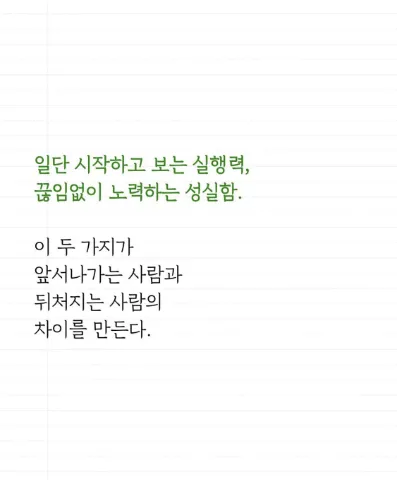 일단 시작하고 보는 실행력,
끊임없이 노력하는 성실함.
이 두 가지가
앞서나가는 사람과
뒤처지는 사람의
차이를 만든다.